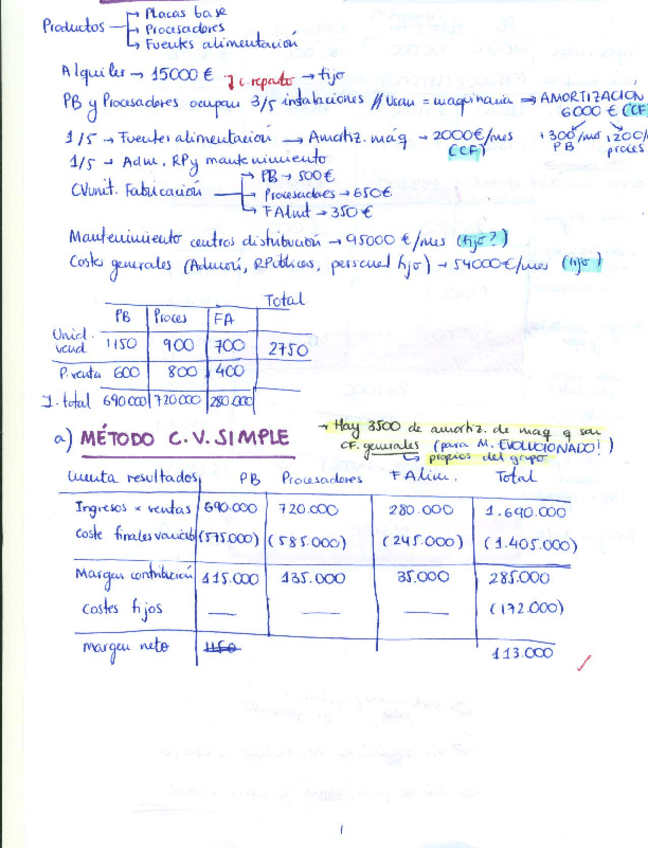 Productos → Placas base
→ Procesadores
→ Fuentes alimentación
Alquiler → 15000 € c. reparto → fijo
PB y Procesadores ocupan 3/5 instalaciones // Usan = maquinaria ⇒ AMORTIZACION
6000 € (CF)
1/5 → Fuentes alimentación → Amortiz. máq → 2000€/mes
(CF)
1300/mes
PB
1200/
proces
1/5 → Adm, RP y mantenimiento
CVunit. Fabricación → PB → 500€
→ Procesadores → 650€
→ FAlimt → 350 €
Mantenimiento centros distribución → 95000 €/mes (fijo?)
Costes generales (Admón, RPúblicas, personal fijo) → 54000€/mes (fijo)
Total
PB Proces FA
Unid. vend. 1150 900 700 2750
P. venta 600 800 400
I. total 690.000 720.000 280.000
→ Hay 3500 de amortiz. de maq q son
CF. generales (para M. EVOLUCIONADO!)
↳ propios del grupo
a) MÉTODO C.V. SIMPLE
Cuenta resultados PB Procesadores FAlim. Total
Ingresos x ventas 690.000 720.000 280.000 1.690.000
Coste finales variab (575.000) (585.000) (245.000) (1.405.000)
Margen contribución 115.000 135.000 35.000 285.000
costes fijos — — — (172.000)
margen neto 113.000
1